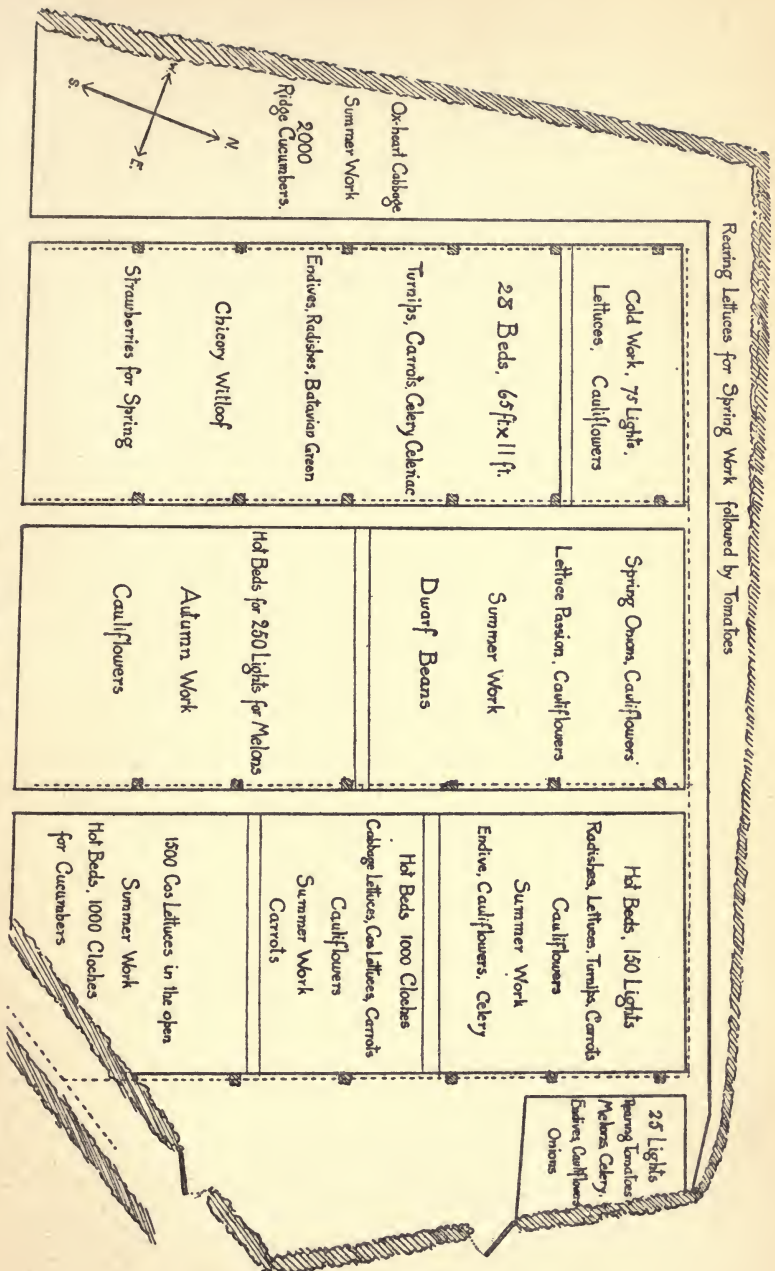 Rearing Lettuces for Spring Work followed by Tomatoes
Ox-heart Cabbage
Summer Work
2000
Ridge Cucumbers.
N.
S.
E.
W.
Cold Work, 75 Lights,
Lettuces, Cauliflowers
28 Beds, 65ft x 11 ft.
Turnips, Carrots, Celery Celeriac
Endives, Radishes, Batavian Green
Chicory Witloof
Strawberries for Spring
Spring Onions, Cauliflowers
Lettuce Passion, Cauliflowers
Summer Work
Dwarf Beans
Hot Beds for 250 Lights for Melons
Autumn Work
Cauliflowers
Hot Beds, 150 Lights
Radishes, Lettuces, Turnips, Carrots
Cauliflowers
Summer Work
Endive, Cauliflowers, Celery
Hot Beds 1000 Cloches
Cabbage Lettuces, Cos Lettuces, Carrots
Cauliflowers
Summer Work
Carrots
1500 Cos Lettuces in the open
Summer Work
Hot Beds, 1000 Cloches
for Cucumbers
25 Lights
Rearing Tomatoes
Melons, Celery,
Endives, Cauliflowers
Onions